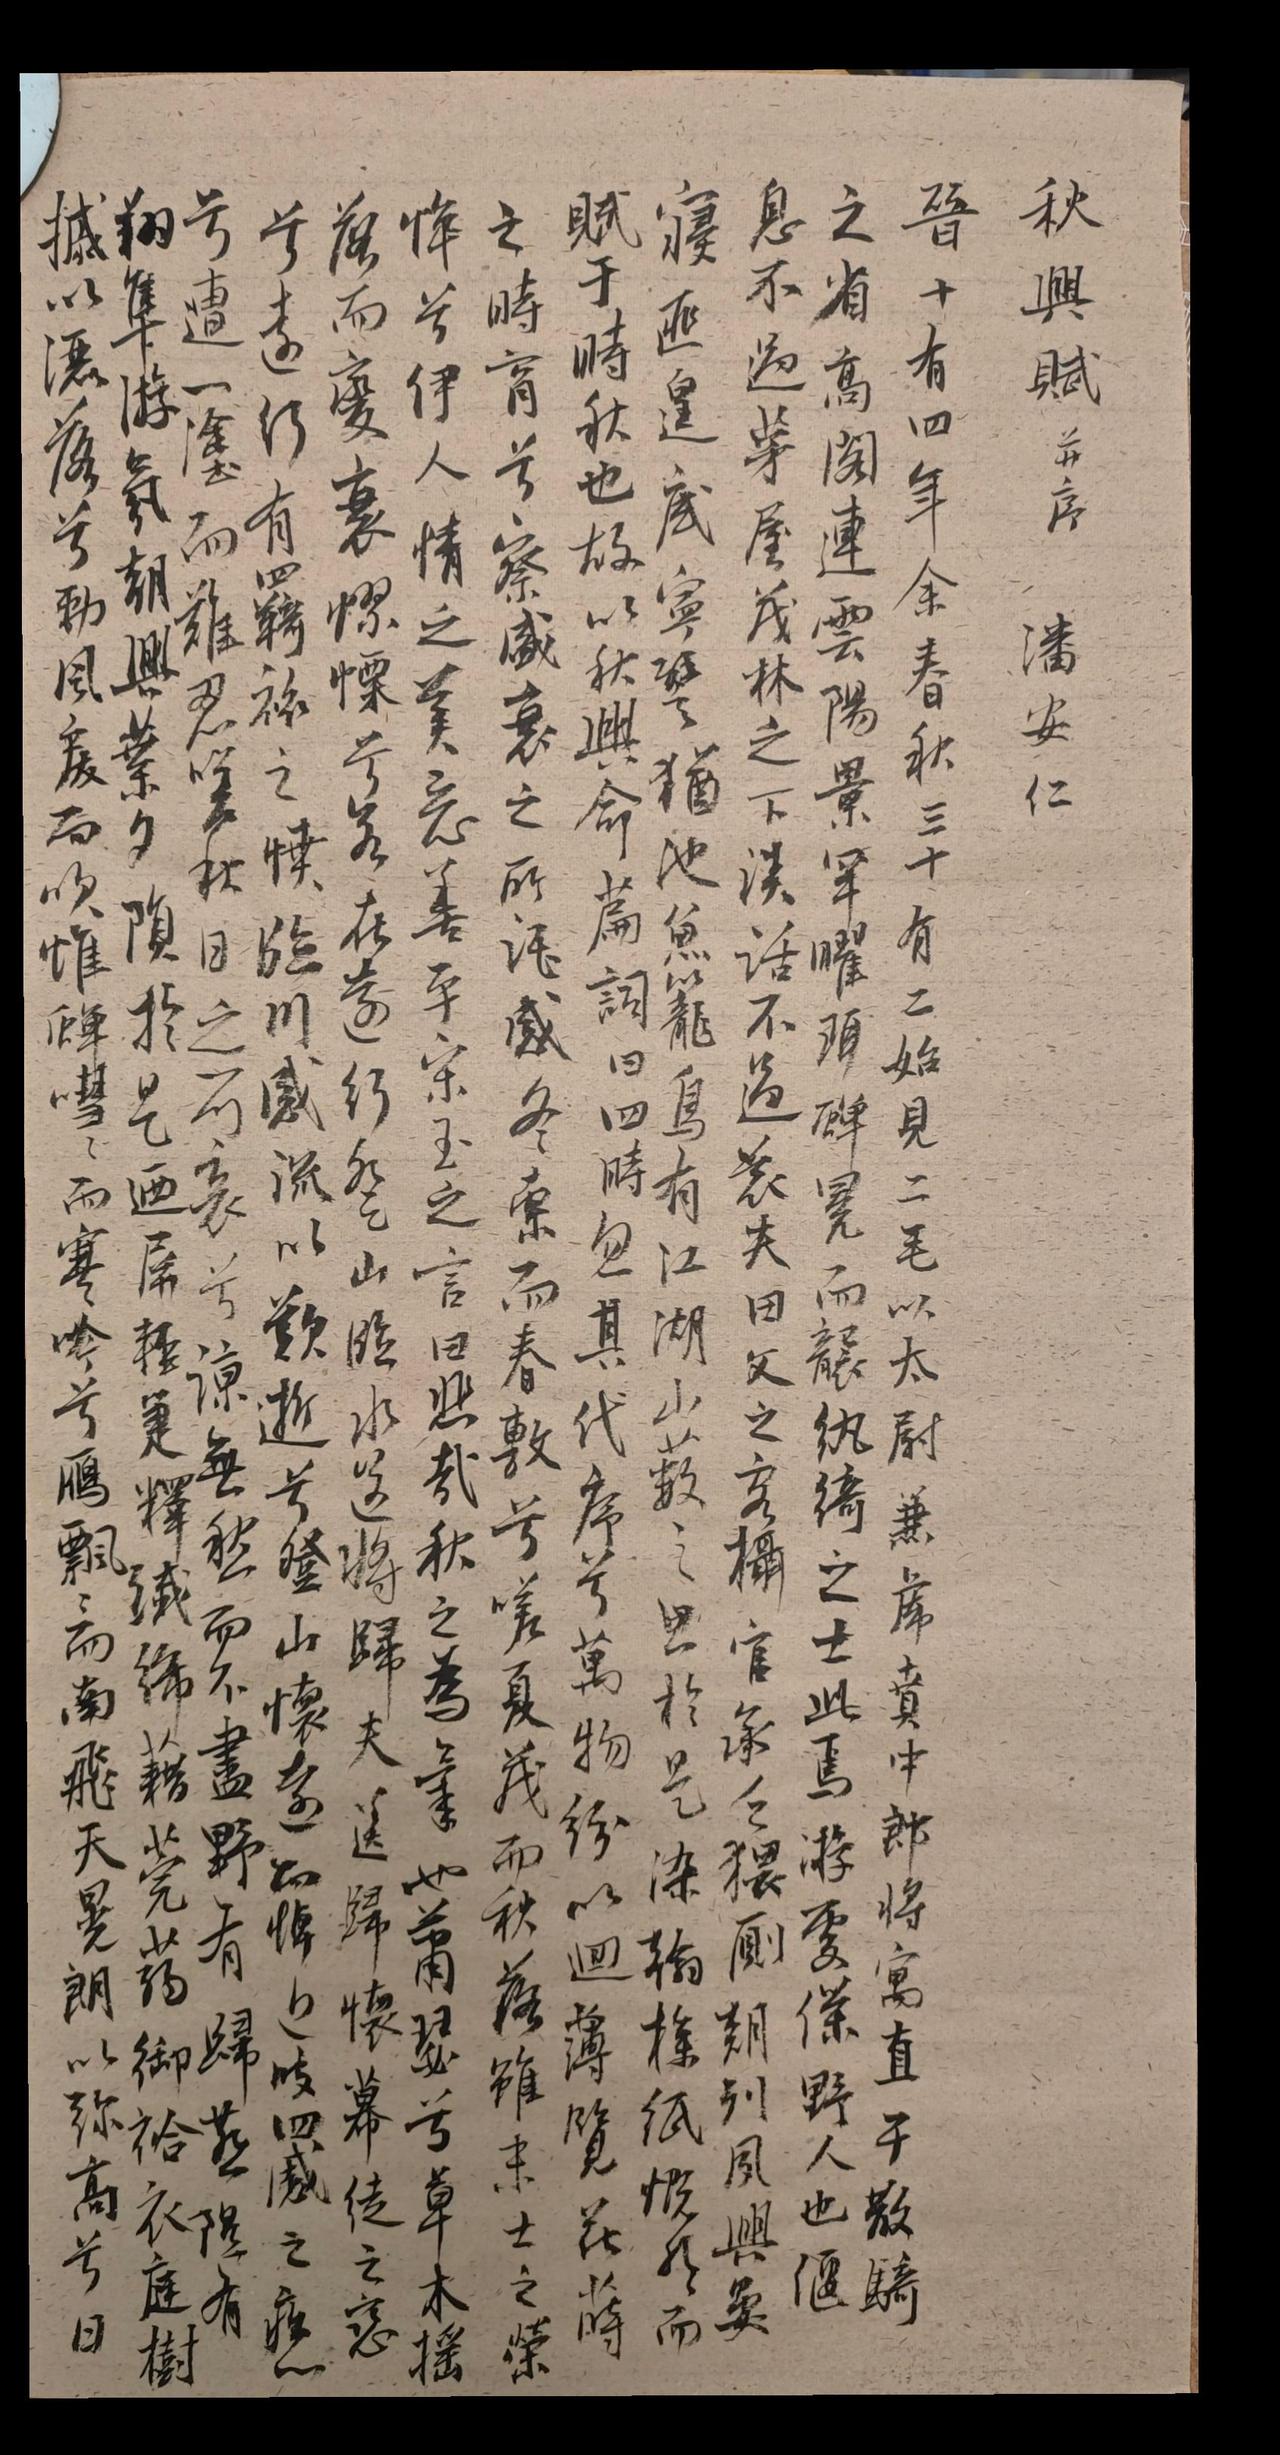 秋興賦 并序 潘安仁
晉十有四年余春秋三十有二始見二毛以太尉兼虎賁中郎將寓直于散騎
之省高閣連雲陽景罕曜珥蟬冕而襲紈綺之士此焉游處僕野人也偃
息不過茅屋茂林之下談話不過農夫田父之客攝官承乏猥廁朝列夙興晏
寢匪遑底寧譬猶池魚籠鳥有江湖山薮之思於是染翰操紙慨然而
賦于時秋也故以秋興命篇詞曰四時忽其代序兮萬物紛以迴薄覽花蒔
之時育兮察盛衰之所託感冬索而春敷兮嗟夏茂而秋落雖末士之榮
悴兮伊人情之美惡善乎宋玉之言曰悲哉秋之為氣也蕭瑟兮草木搖
落而變衰憀慄兮若在遠行登山臨水送將歸夫送歸懷慕徒之戀
兮遠行有羈旅之憤臨川感流以歎逝兮登山懷遠而悼近彼四慼之疚心
兮遭一塗而難忍嗟秋日之可哀兮諒無愁而不盡野有歸燕隰有
翔隼游氛朝興葉夕隕於是迺屏輕箑釋纖絺藉莞蒻御袷衣庭樹
摵以灑落兮勁風戾而吹帷蟬嘒〻而寒吟兮鴈飄〻而南飛天晃朗以弥高兮日